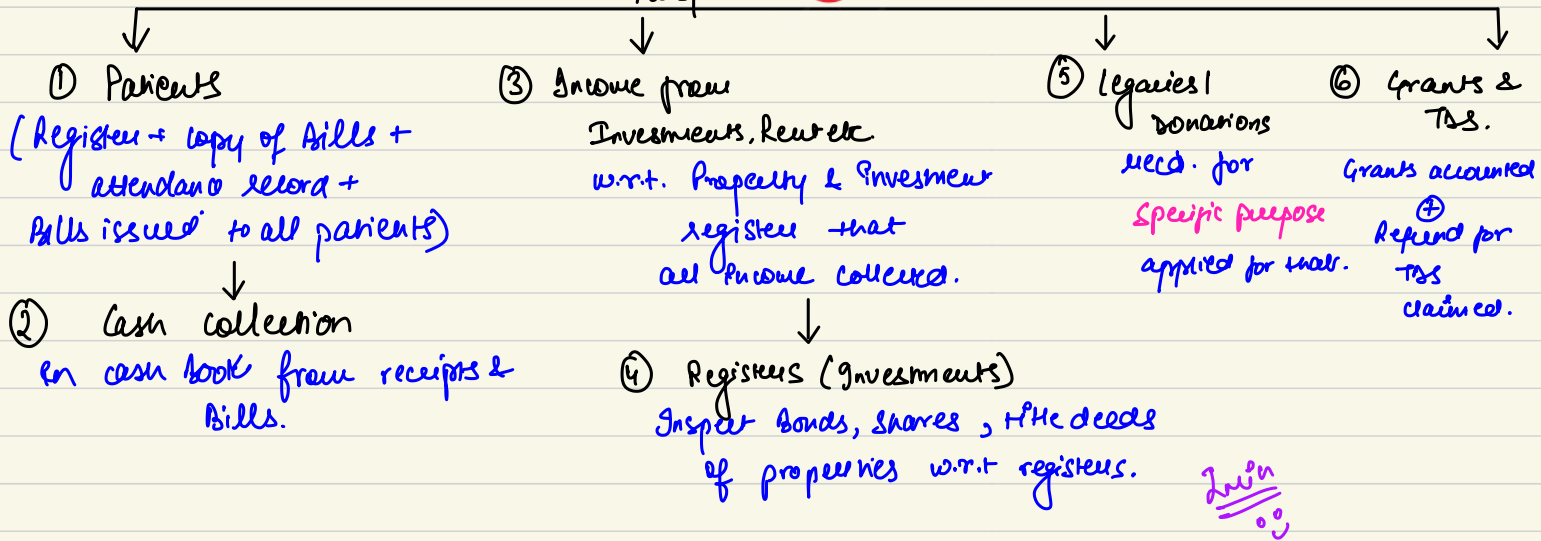 ① Patients
(Register + copy of Bills +
attendance record +
Bills issued to all patients)
② Cash collection
in cash book from receipts &
Bills.
③ Income from
Investments, Rent etc.
w.r.t. Property & Investment
register that
all income collected.
④ Registers (Investments)
Inspect Bonds, shares, title deeds
of properties w.r.t registers.
⑤ legacies/
Donations
recd. for
specific purpose
applied for that.
⑥ Grants &
TDS.
Grants accounted
+
Refund for
TDS
claimed.